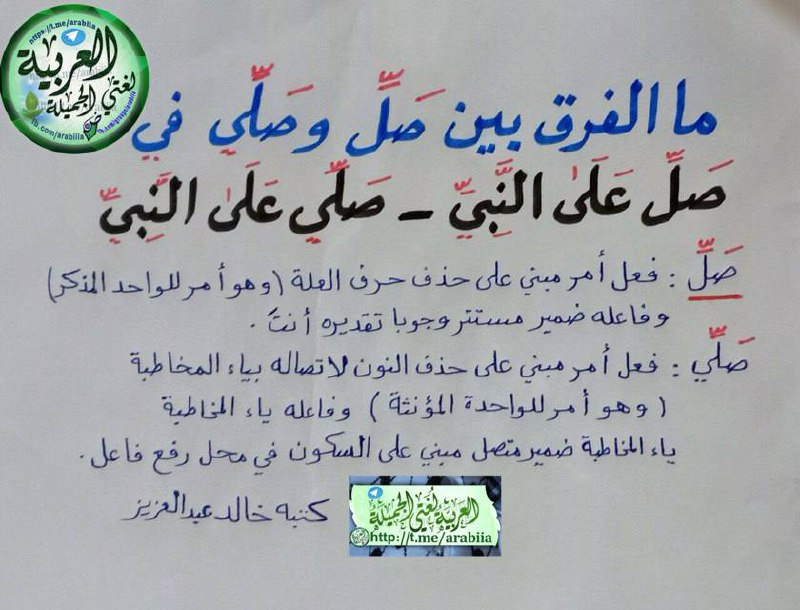 https://t.me/arabiia
العربية
لغتي الجميلة
fb.com/arabiia
ما الفرق بين صَلِّ وصَلِّي في
صَلِّ عَلَىٰ النَّبِيِّ - صَلِّي عَلَىٰ النَّبِيِّ
صَلِّ : فعل أمر مبني على حذف حرف العلة (وهو أمر للواحد المذكر)
وفاعله ضمير مستتر وجوبا تقديره أنتَ .
صَلِّي : فعل أمر مبني على حذف النون لاتصاله بياء المخاطبة
( وهو أمر للواحدة المؤنثة ) وفاعله ياء المخاطبة
ياء المخاطبة ضمير متصل مبني على السكون في محل رفع فاعل .
كتبه خالد عبدالعزيز
العربية لغتي الجميلة
http://t.me/arabiia